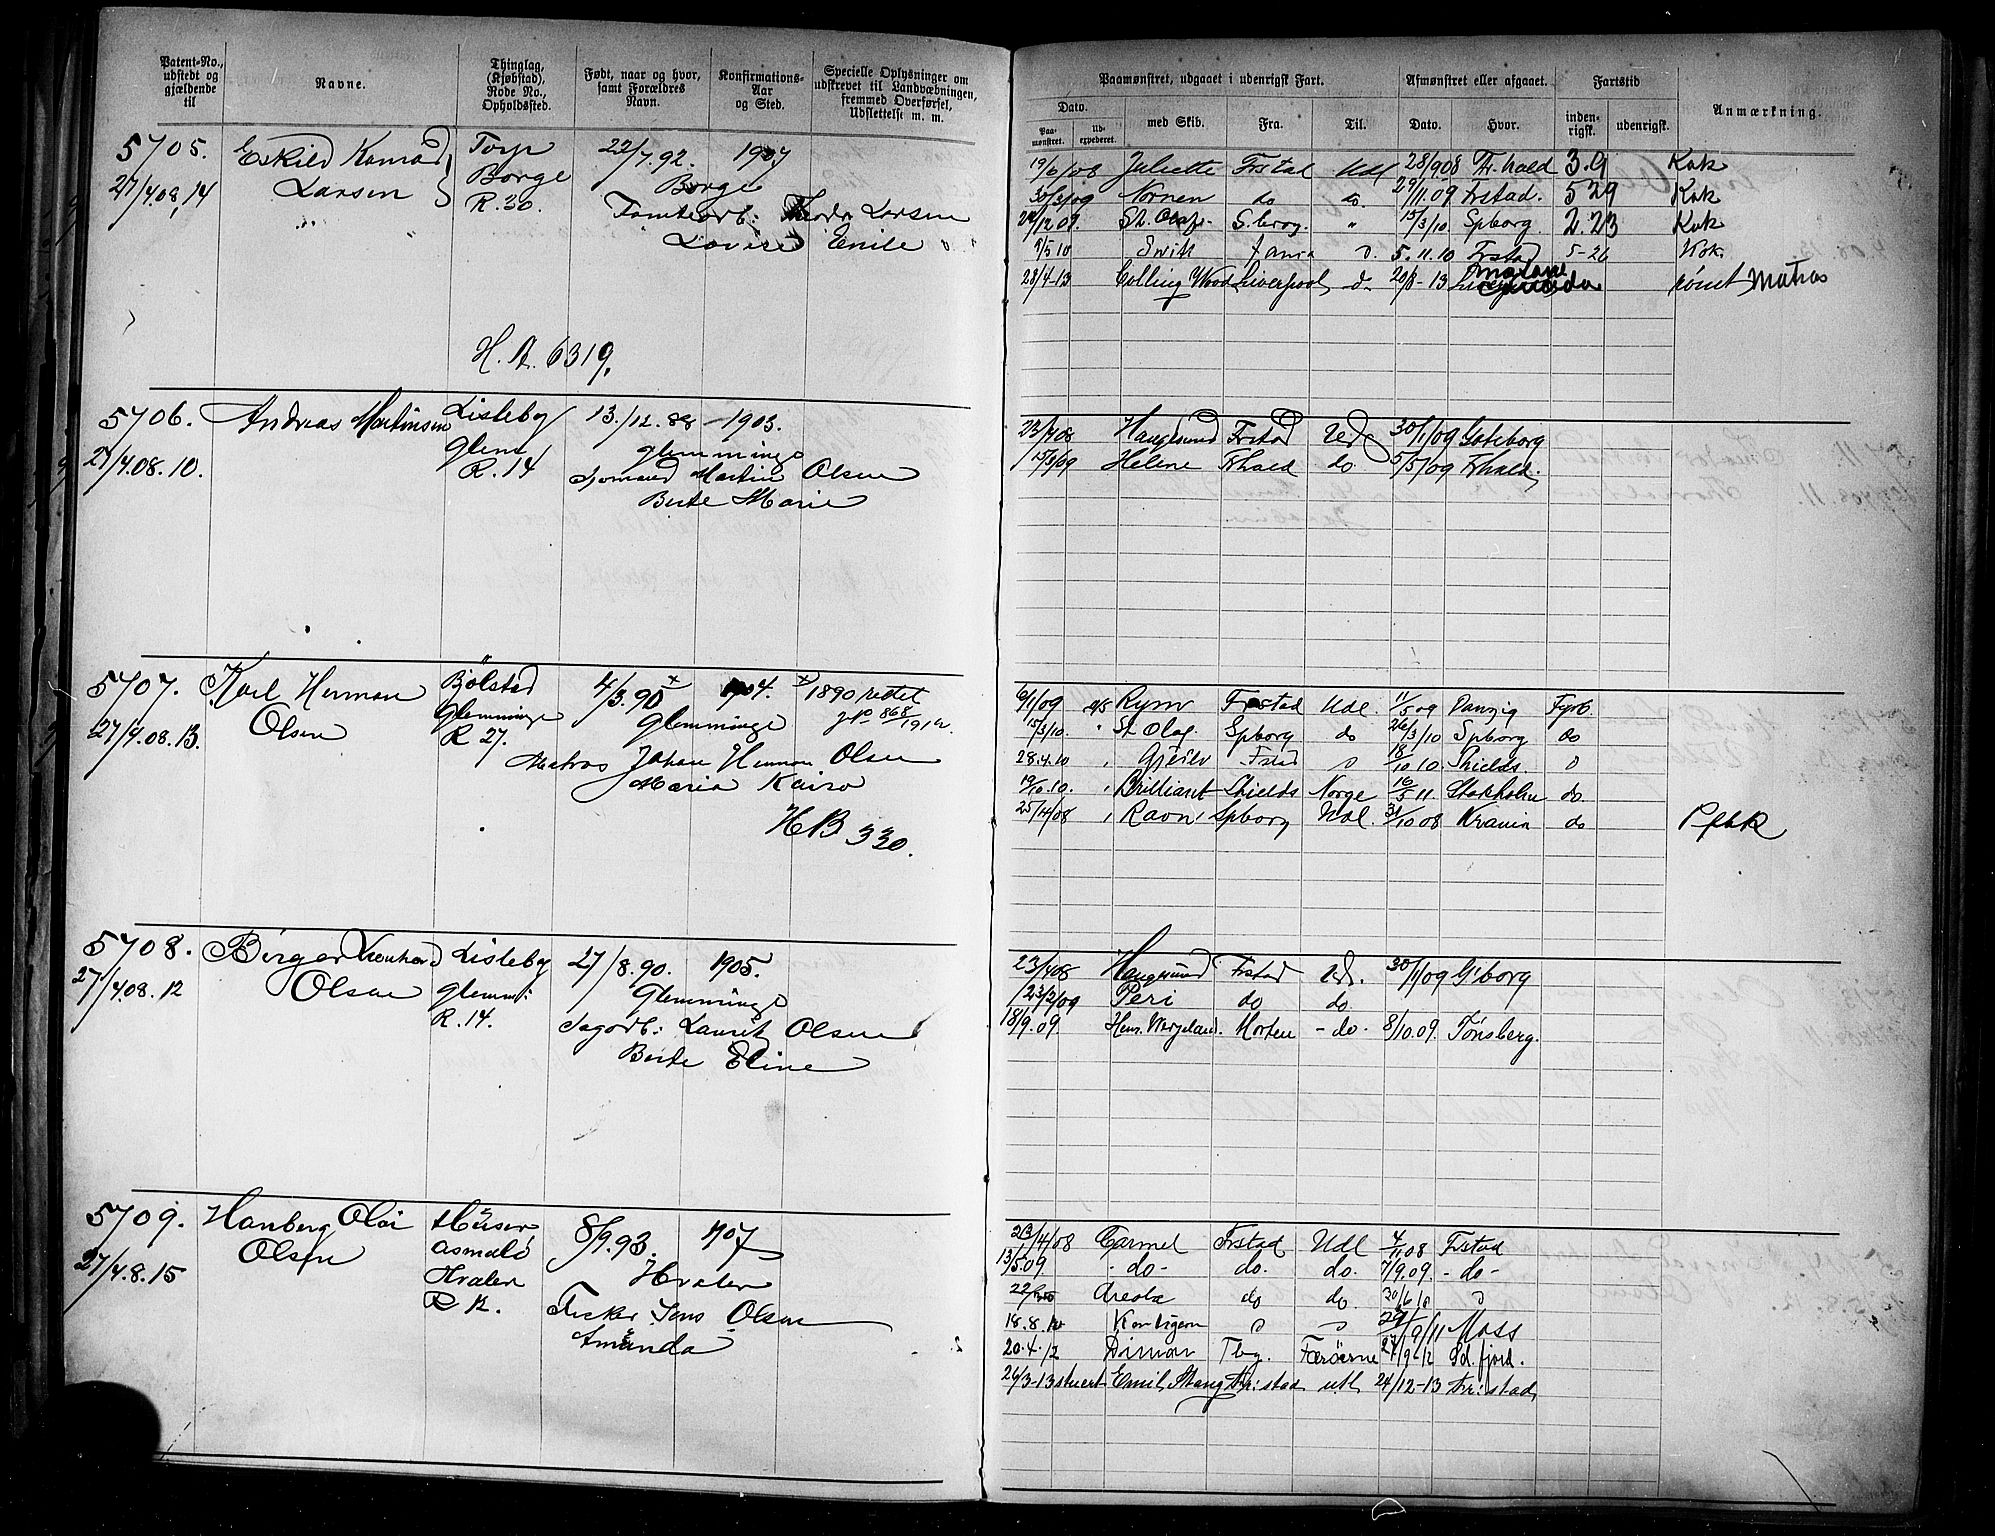 Patent-No., udstedt og gjældende til
Navne.
Thinglag, (Kjøbstad), Rode No., Opholdssted.
Født, naar og hvor, samt Forældres Navn.
Konfirmations-Aar og Sted.
Specielle Oplysninger om udskrevet til Landvæbningen, fremmed Overførsel, Udslettelse m. m.
Paamønstret, udgaaet i udenrigsk Fart.
Afmønstret eller afgaaet.
Fartstid
Anmærkning.
Dato.
med Skib.
Fra.
Til.
Dato.
Hvor.
inden-rigsk.
udenrigsk.
Paa-mønstret.
Ud-expederet.
5705. Eskild Konrad Torp 22/7.92. 1907
27/4.08,14 Larsen Borge Borge
R. 30. Tomtearb: Larsen
Lovise Emile
H. A. 6319.
19/6/08 Juliette Frstad Udl 28/908 Fr.hald 3.9 Kok
30/3/09 Nornen do do. 29/11.09 Frstad. 529 Kok
24/12 09. St. Olaf S.borg. " 15/3/10. Spborg 2.23 Kok
5.11.10 Frstad 5-26 Kok
28/4-13 Colling Wood Liverpool d- 20/8-13 rømt Matros
5706. Andreas Martinsen Lisleby 13./12.88 - 1903.
27/4.08.10. Glem Glemminge
R. 14 Sjømand Martin Olsen
Berte Marie
23/408 Haugesund Frstad Ud 30/1/09 Goteborg
15/3/09 Helene Frhald do 5/5/09 Frhald.
5707. Karl Herman Bjølstad 4/3.90 x 1904. x 1890 rettet
27/4.08.13. Olsen Glemminge Glemminge Jno 868/1912.
R 27. Matros Johan Herman Olsen
Maria Kaisa
HB 330.
6/1/09 Rym Frstad Udl. 11/5 09 Danzig Fyrb.
15/3/10. St Olaf Spborg do 26/3/10 Spborg do
28.4.10 Frstad 18/10 10 Shields
19/10.10. Brilliant Shields Norge 16/5 11. Stokholm do.
25/4/08 Ravn Spborg Udl. 31/10 08 do
5708. Birger Leonhard Lisleby 27/8.90. 1905.
27/4.08.12 Olsen Glemm: Glemminge
R. 14. Sagarb: Laurits Olsen
Berte Eline
23/408 Haugesund Frstad Ud. 30/1/09 G:borg
23/2/09 Peri do do
18/9.09. Henr. Wergeland. Horten - do. 8/10.09. Tønsberg.
5709. Hanberg Olai 8/9.93. 1907
27/4.8.15 Olsen Asmalø Hvaler
Hvaler
R K. Fisker Jens Olsen
Amanda
23/4/08 Carmel Frstad Udl 4/11.08 Frstad
13/5 09. - do - do. do. 7/9.09. - do -
do do. 30/6 10
18.8.10 29/9/11 Moss
20.4.12 Dimon Tbg. Færöerne 27/9-12 Sd.fjord.
26/3-13 stuert Emil Stang Fr:stad utl 24/12-13 Fr:stad